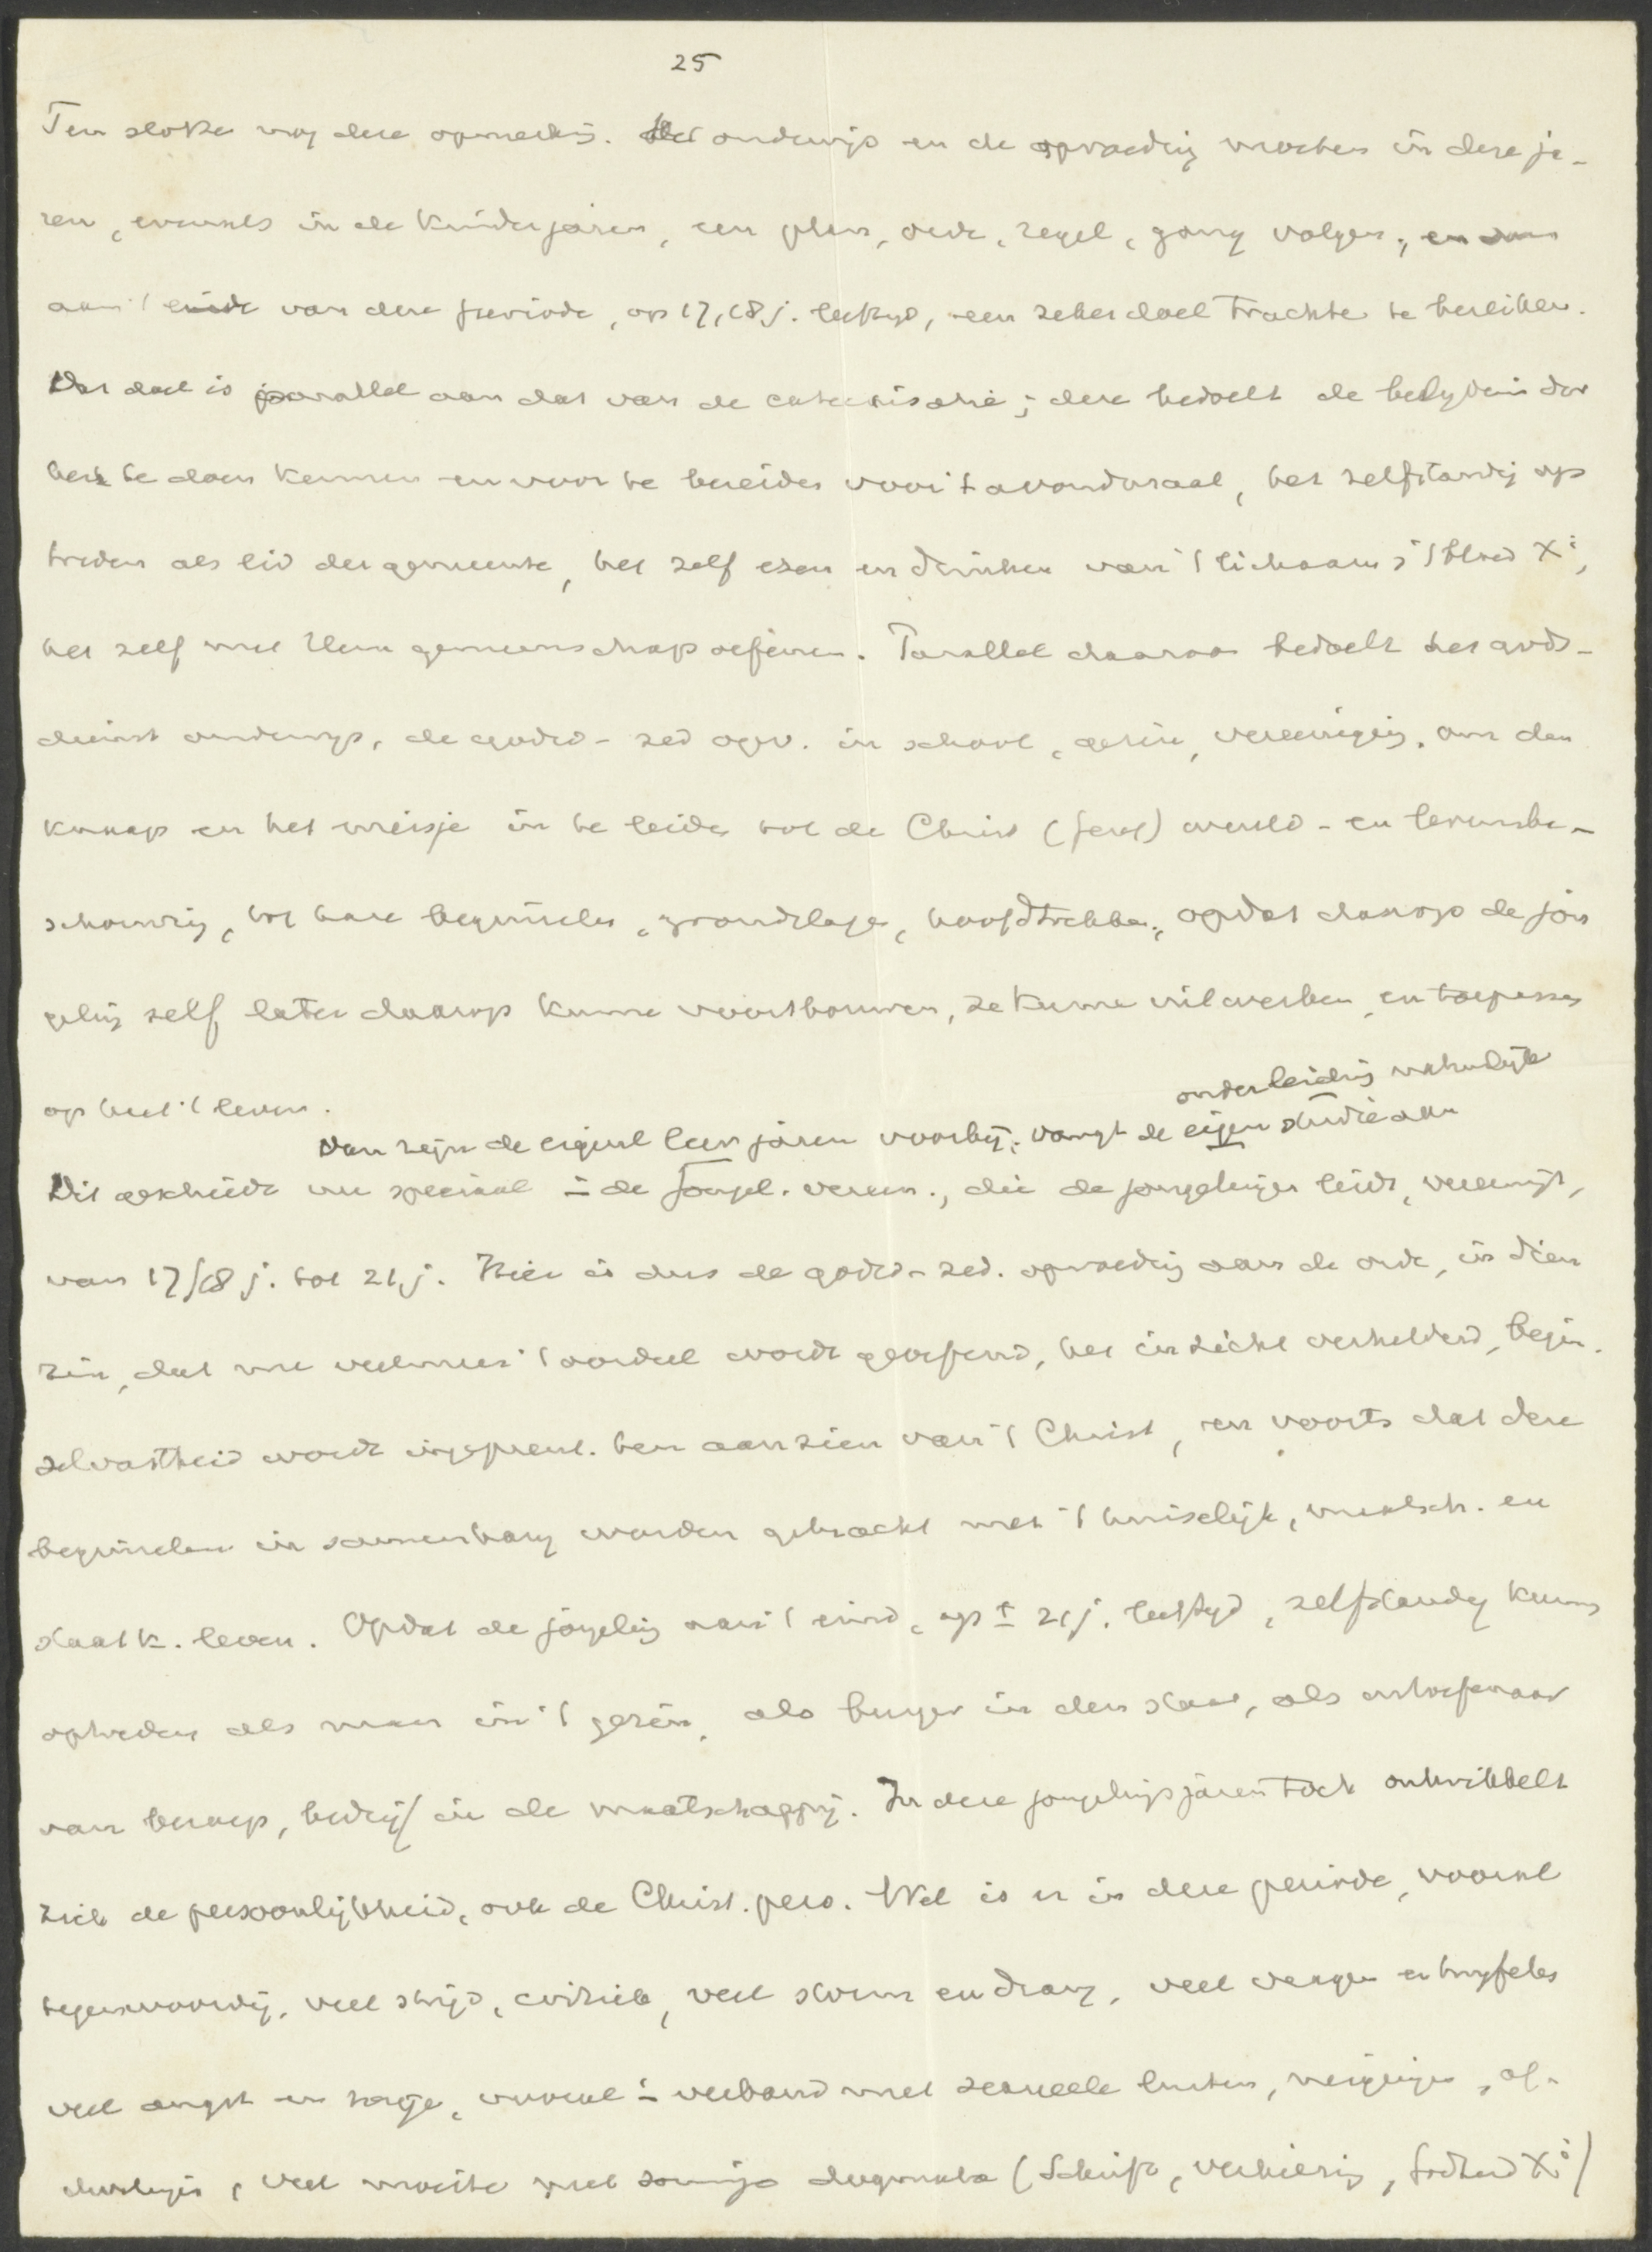 25
Ten slotte nog deze opmerking. Het onderwijs en de opvoeding moeten in deze ja-
ren, evenals in de kinderjaren, een plan, orde, regel, gang volgen, en dan
aan 't einde van deze periode, op 17, 18 j. leeftijd, een zeker doel trachten te bereiken.
Dat doel is parallel aan dat van de catechisatie; deze bedoelt de belijdenis der
kerk te doen kennen en voor te bereiden voor 't avondmaal, het zelfstandig op
treden als lid der gemeente, het zelf eten en drinken van 't lichaam & 't bloed Xi,
het zelf met Hem gemeenschap oefenen. Parallel daaraan bedoelt het gods-
dienst onderwijs, de godsd - zed opv. in school, gezin, vereeniging, om den
knaap en het meisje in te leiden tot de Christ (geref) wereld - en levensbe-
schouwing, tot hare beginselen, grondslagen, hoofdtrekken, opdat daarop de jon
geling zelf later daarop kunne voortbouwen, ze kunne uitwerken, en toepassen
op heel 't leven.
onder leiding natuurlijk
Dan zijn de eigenl leerjaren voorbij; vangt de eigen studie aan
Dit geschiedt nu speciaal in de Jongel. vereen., die de jongelingen leidt, vereenigt,
van 17/18 j. tot 21 j. Hier is dus de godsd - zed. opvoeding aan de orde, in dien
zin, dat nu veelmeer 't oordeel wordt geoefend, het inzicht verhelderd, begin
selvastheid wordt ingeprent. ten aanzien van 't Christ, en voorts dat deze
beginselen in samenhang worden gebracht met 't huiselijk, maatsch. en
staatk. leven. Opdat de jongeling aan 't eind, op ± 21 j. leeftijd, zelfstandig kunne
optreden als man in 't gezin, als burger in den staat, als uitoefenaar
van beroep, bedrijf in de maatschappij. In deze jongelingsjaren toch ontwikkelt
zich de persoonlijkheid, ook de Christ. pers. Wel is er in deze periode, vooral
tegenwoordig, veel strijd, critiek, veel storm en drang, veel vragen en twijfelen
veel angst en zorge, vooral in verband met sexueele lusten, neigingen, af-
dwalingen, veel moeite met sommige dogmata (Schrift, verkiezing, Godheid Xi)